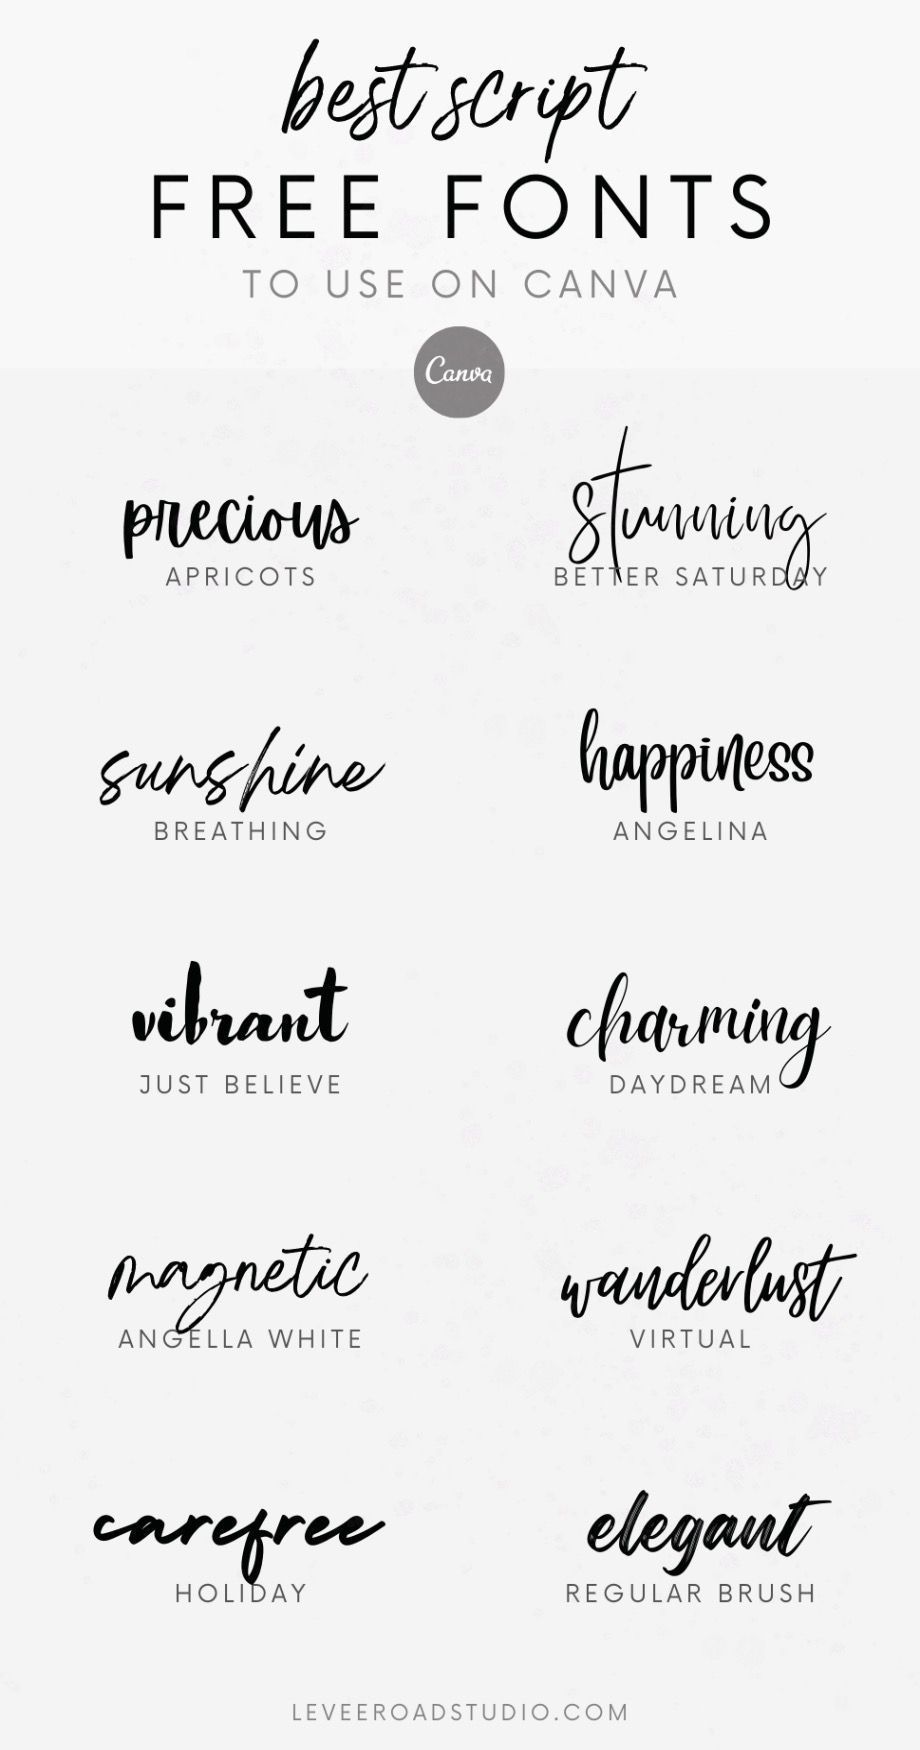 best script
FREE FONTS
TO USE ON CANVA
Canva
precious
APRICOTS
stunning
BETTER SATURDAY
sunshine
BREATHING
happiness
ANGELINA
vibrant
JUST BELIEVE
charming
DAYDREAM
magnetic
ANGELLA WHITE
wanderlust
VIRTUAL
carefree
HOLIDAY
elegant
REGULAR BRUSH
LEVEEROADSTUDIO.COM